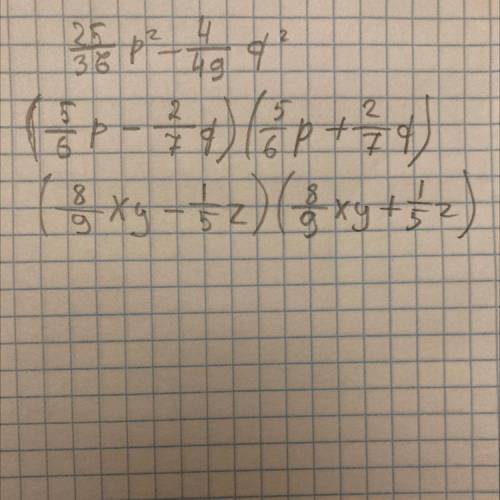 25/36 p² - 4/49 q²
(5/6 p - 2/7 q)(5/6 p + 2/7 q)
(8/9 xy - 1/5 z)(8/9 xy + 1/5 z)